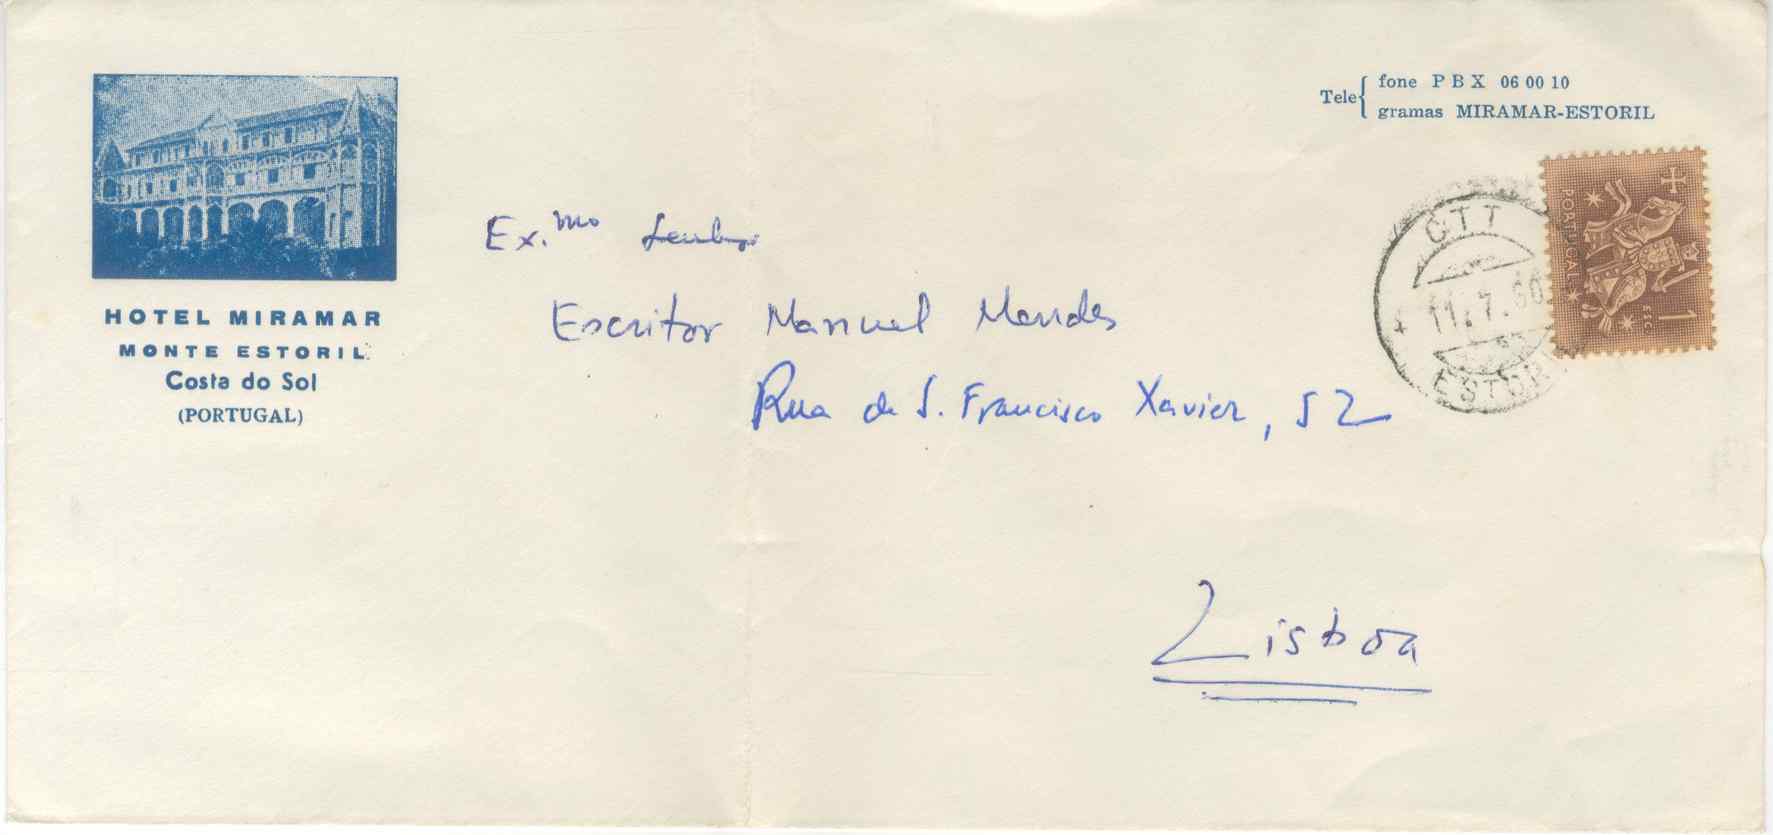 HOTEL MIRAMAR
MONTE ESTORIL
Costa do Sol
(PORTUGAL)
Tele { fone P B X 06 00 10
gramas MIRAMAR-ESTORIL
PORTUGAL
1 ESC
CTT
11.7.60
ESTORI
Ex.mo Senhor
Escritor Manuel Mendes
Rua de S. Francisco Xavier, 52
Lisboa